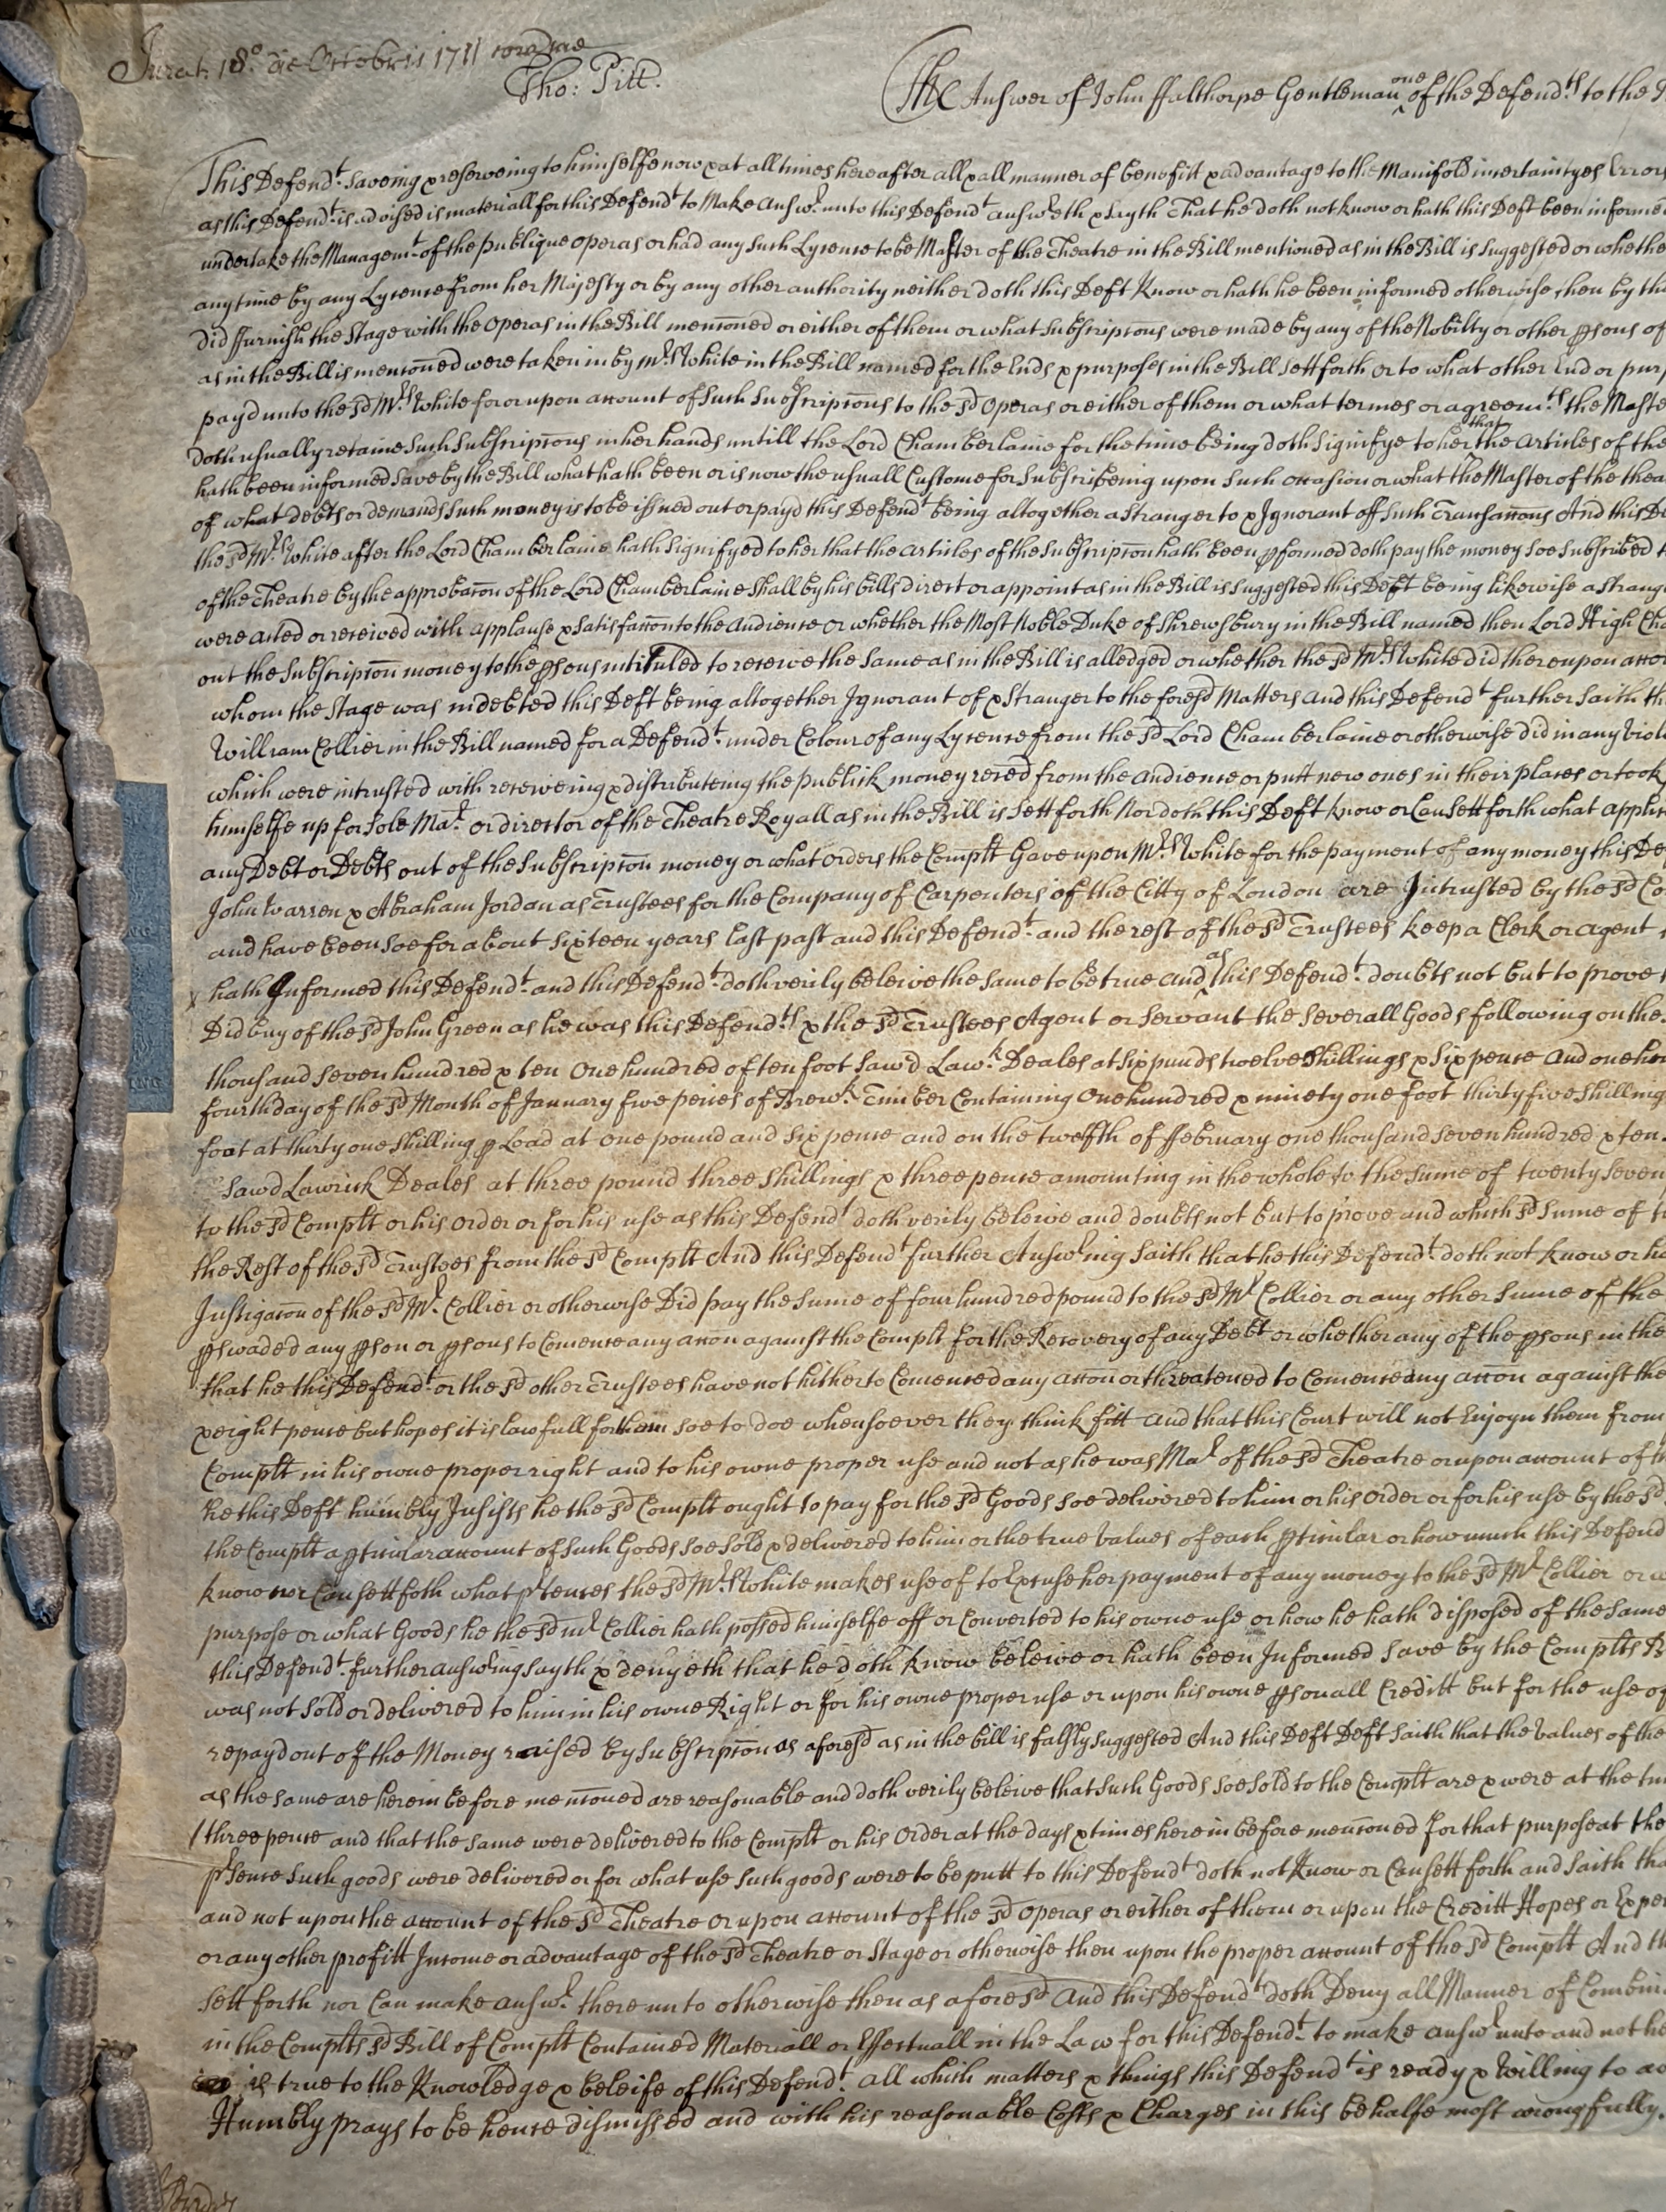 Jurat: 18.° die Octobris 1711 coram me
Tho: Pitt.
The Answer of John ffalthorpe Gentleman one of the Defend.ts to the
This Defend.t saveing & reserveing to himselfe now & at all times hereafter all & all manner of benefitt & advantage to the Manifold incertaintyes Errors
as this Defend.t is advised is materiall for this Defend.t to Make answ.r unto this Defend.t answ.reth & sayth That he doth not know or hath this Deft been informed
undertake the Managem.t of the publique operas or had any such Lycence to be Master of the Theatre in the Bill mentioned as in the Bill is suggested or whether
any time by any Lycence from her Majesty or by any other authority neither doth this Deft know or hath he been informed otherwise then by the
did ffurnish the Stage with the Operas in the Bill menc̃oned or either of them or what subscripc̃ons were made by any of the Nobilty or other ꝑsons of
as in the Bill is menc̃oned were taken in by M.rs White in the Bill named for the Ends & purposes in the Bill sett forth or to what other End or
payd unto the s.d M.rs White for or upon account of such subscripc̃ons to the s.d Operas or either of them or what termes or agreem.ts the Maste
doth usually retaine such subscripc̃ons in her hands untill the Lord Chamberlaine for the time being doth signifye to her that the articles of the
hath been informed save by the Bill what hath been or is now the usuall Custome for subscribeing upon such occasion or what the Master of the thea
of what debts or demands such money is to be issued out or payd this Defend.t being altogether a stranger to & Ignorant off such Transacc̃ons And this
the s.d M.rs White after the Lord Chamberlaine hath signifyed to her that the articles of the subscripc̃on hath been ꝑformed doth pay the money soe subscribed
of the Theatre by the approbac̃on of the Lord Chamberlaine shall by his bills direct or appoint as in the Bill is suggested this Deft being likewise a strang
were acted or received with applause & satisfacc̃on to the audience or whether the Most Noble Duke of Shrewsbury in the Bill named then Lord High Cha
out the subscripc̃on money to the ꝑsons intituled to receive the same as in the Bill is alledged or whether the s.d M.rs White did thereupon
whom the Stage was indebted this Deft being altogether Ignorant of & Stranger to the fores.d Matters and this Defend.t further saith
William Collier in the Bill named for a Defend.t under Colour of any Lycence from the s.d Lord Chamberlaine or otherwise did in any
which were intrusted with receiveing & distributeing the publick money reced from the audience or putt new ones in their places or took
himselfe up for sole Ma.r or director of the Theatre Royall as in the Bill is sett forth Nor doth this Deft know or Can sett forth what
any Debt or Debts out of the subscripc̃on money or what orders the Complt Gave upon M.rs White for the payment of any money this
John Warren & Abraham Jordan as Trustees for the Company of Carpenters of the Citty of London are Intrusted by the s.d
and have been soe for about sixteen years last past and this Defend.t and the rest of the s.d Trustees keep a Clerk or agent
hath Informed this Defend.t and this Defend.t doth verily beleive the same to be true and as this Defend.t doubts not but to prove
Did buy of the s.d John Green as he was this Defend.ts & the s.d Trustees Agent or Servant the severall Goods following on the
thousand seven hundred & ten One hundred of ten foot saw'd Law.k Deales at six punds twelve shillings & six pence and one
fourth day of the s.d Month of January five peices of Brew.k Timber Containing One hundred & ninety one foot thirty five shilling
foot at thirty one shilling ꝑ Load at one pound and six pence and on the twelfth of ffebruary one thousand seven hundred & ten
sawd Lawick Deales at three pound three shillings & three pence amounting in the whole to the sume of twenty seven
to the s.d Complt or his Order or for his use as this Defend.t doth verily beleive and doubts not but to prove and which s.d sume of
the Rest of the s.d Trustees from the s.d Complt And this Defend.t further Answ.ring saith that he this Defend.t doth not know or
Instigac̃on of the s.d M.r Collier or otherwise Did pay the sume of four hundred pound to the s.d M.r Collier or any other sume of the
ꝑswaded any ꝑson or ꝑsons to Comence any acc̃on against the Complt for the Recovery of any Debt or whether any of the ꝑsons in the
that he this Defend.t or the s.d other Trustees have not hitherto Comenced any acc̃on or threatened to Comence any acc̃on against the
& eight pence but hopes it is lawfull for them soe to doe whensoever they think fitt and that this Court will not Enjoyn them from
Complt in his owne proper right and to his owne proper use and not as he was Ma.r of the s.d Theatre or upon account of
he this Deft humbly Insists he the s.d Complt ought to pay for the s.d Goods soe delivered to him or his Order or for his use by the s.d
the Complt a ꝑticular account of such Goods soe sold & delivered to him or the true values of each ꝑticular or how much this Defend
know nor Can sett foth what p.rtences the s.d M.rs White makes use of to Excuse her payment of any money to the s.d M.r Collier or
purpose or what Goods he the s.d m.r Collier hath possed himselfe off or Converted to his owne use or how he hath disposed of the same
this Defend.t further answ.ring sayth & denyeth that he doth know beleive or hath been Informed save by the Complts
was not sold or delivered to him in his owne Right or for his owne proper use or upon his owne ꝑsonall Creditt but for the use of
repayd out of the Money raised by subscripc̃on as afores.d as in the bill is falsly suggested And this Deft Deft saith that the values of the
as the same are herein before menc̃oned are reasonable and doth verily beleive that such Goods soe sold to the Complt are & were at the
three pence and that the same were delivered to the Complt or his Order at the days & times herein before menc̃oned for that purpose at the
p.rsence such goods were delivered or for what use such goods were to be putt to this Defend.t doth not know or Can sett forth and saith
and not upon the account of the s.d Theatre or upon account of the s.d Operas or either of them or upon the Creditt Hopes or
or any other profitt Income or advantage of the s.d Theatre or Stage or otherwise then upon the proper account of the s.d Complt And
sett forth nor Can make answ.r thereunto otherwise then as afores.d and this Defend.t doth Deny all Manner of
in the Complts s.d Bill of Complt Contained Materiall or Effectuall in the Law for this Defend.t to make answ.r unto and not
is true to the Knowledge & beleife of this Defend.t all which matters & things this Defend.t is ready & willing to
Humbly prays to be hence dismissed and with his reasonable Costs & Charges in this behalfe most wrongfully